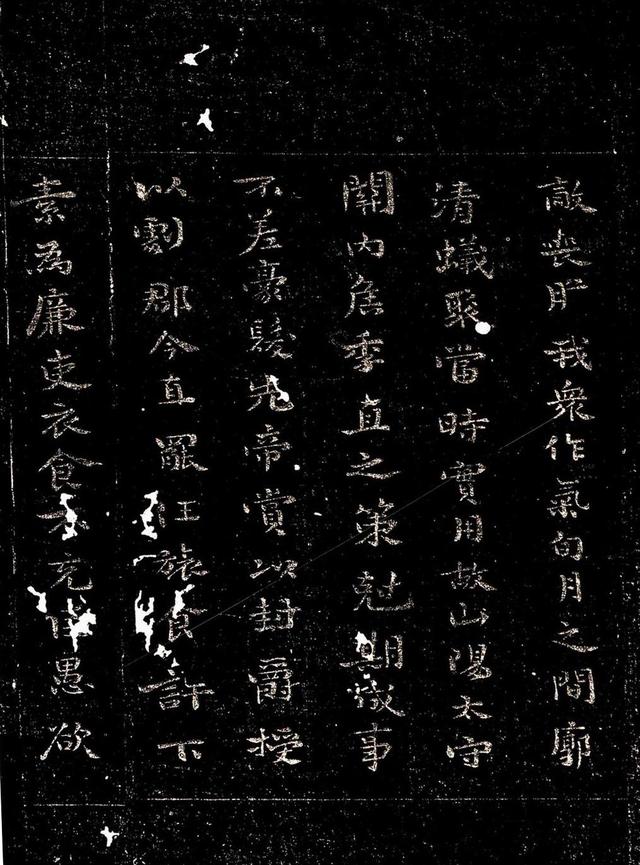 敵喪胆我衆作氣旬月之間廓
清蟻聚當時實用故山陽太守
關內侯季直之策尅期成事
不差豪髮先帝賞以封爵授
以劇郡今直罷任旅食許下
素爲廉吏衣食不充臣愚欲